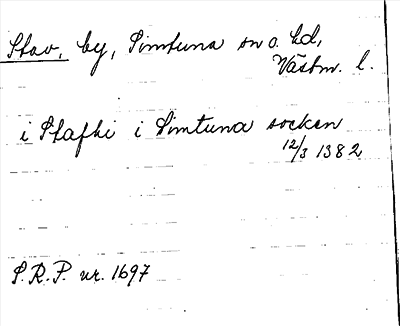 Stav, by, Simtuna sn o. hd,
Västm. l.
i Stafhi i Simtuna socken
12/3 1382
S.R.P. nr. 1697